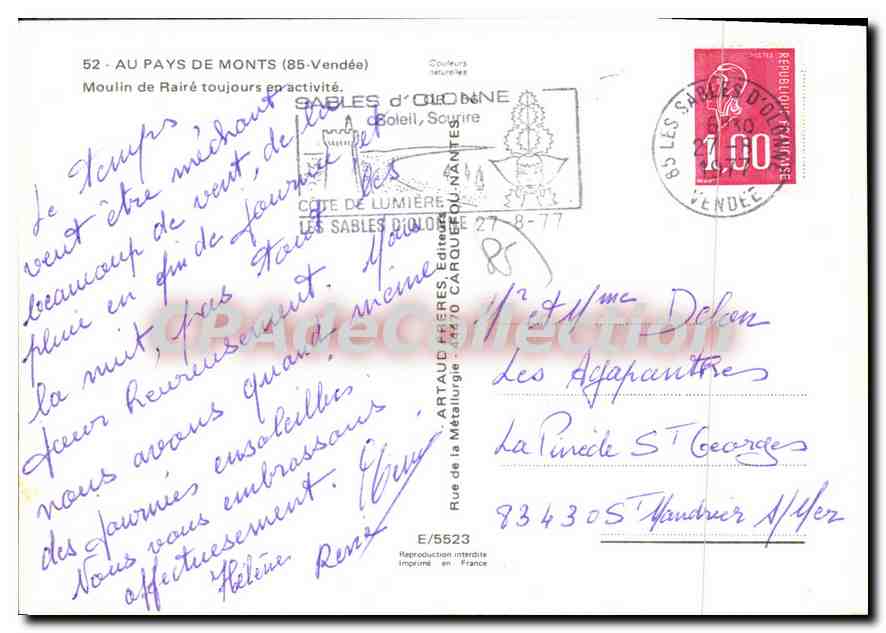 52 - AU PAYS DE MONTS (85-Vendée)
Moulin de Rairé toujours en activité.
Couleurs
naturelles
SABLES d'OLONNE
Soleil, Sourire
CÔTE DE LUMIÈRE
LES SABLES D'OLONNE 27-8-77
85 LES SABLES D'OLONNE
6H30
27-8
1977
VENDÉE
POSTES
1,00
REPUBLIQUE FRANÇAISE
Le temps
veut être méchant
beaucoup de vent, de la
pluie en fin de journée et
la nuit, pas tout les
jour heureusement. Mais
nous avons quand même
des journées ensoleillées.
Nous vous embrassons
affectuesement.
Hélène René
85
ARTAUD FRÈRES, Editeurs
Rue de la Métallurgie - 44470 CARQUEFOU-NANTES
Mr et Mme Delon
Les Agapanthes
La Pinède St Georges
83430 St Mandrier S/Mer
E/5523
Reproduction interdite
Imprimé en France
CPAdeCollection